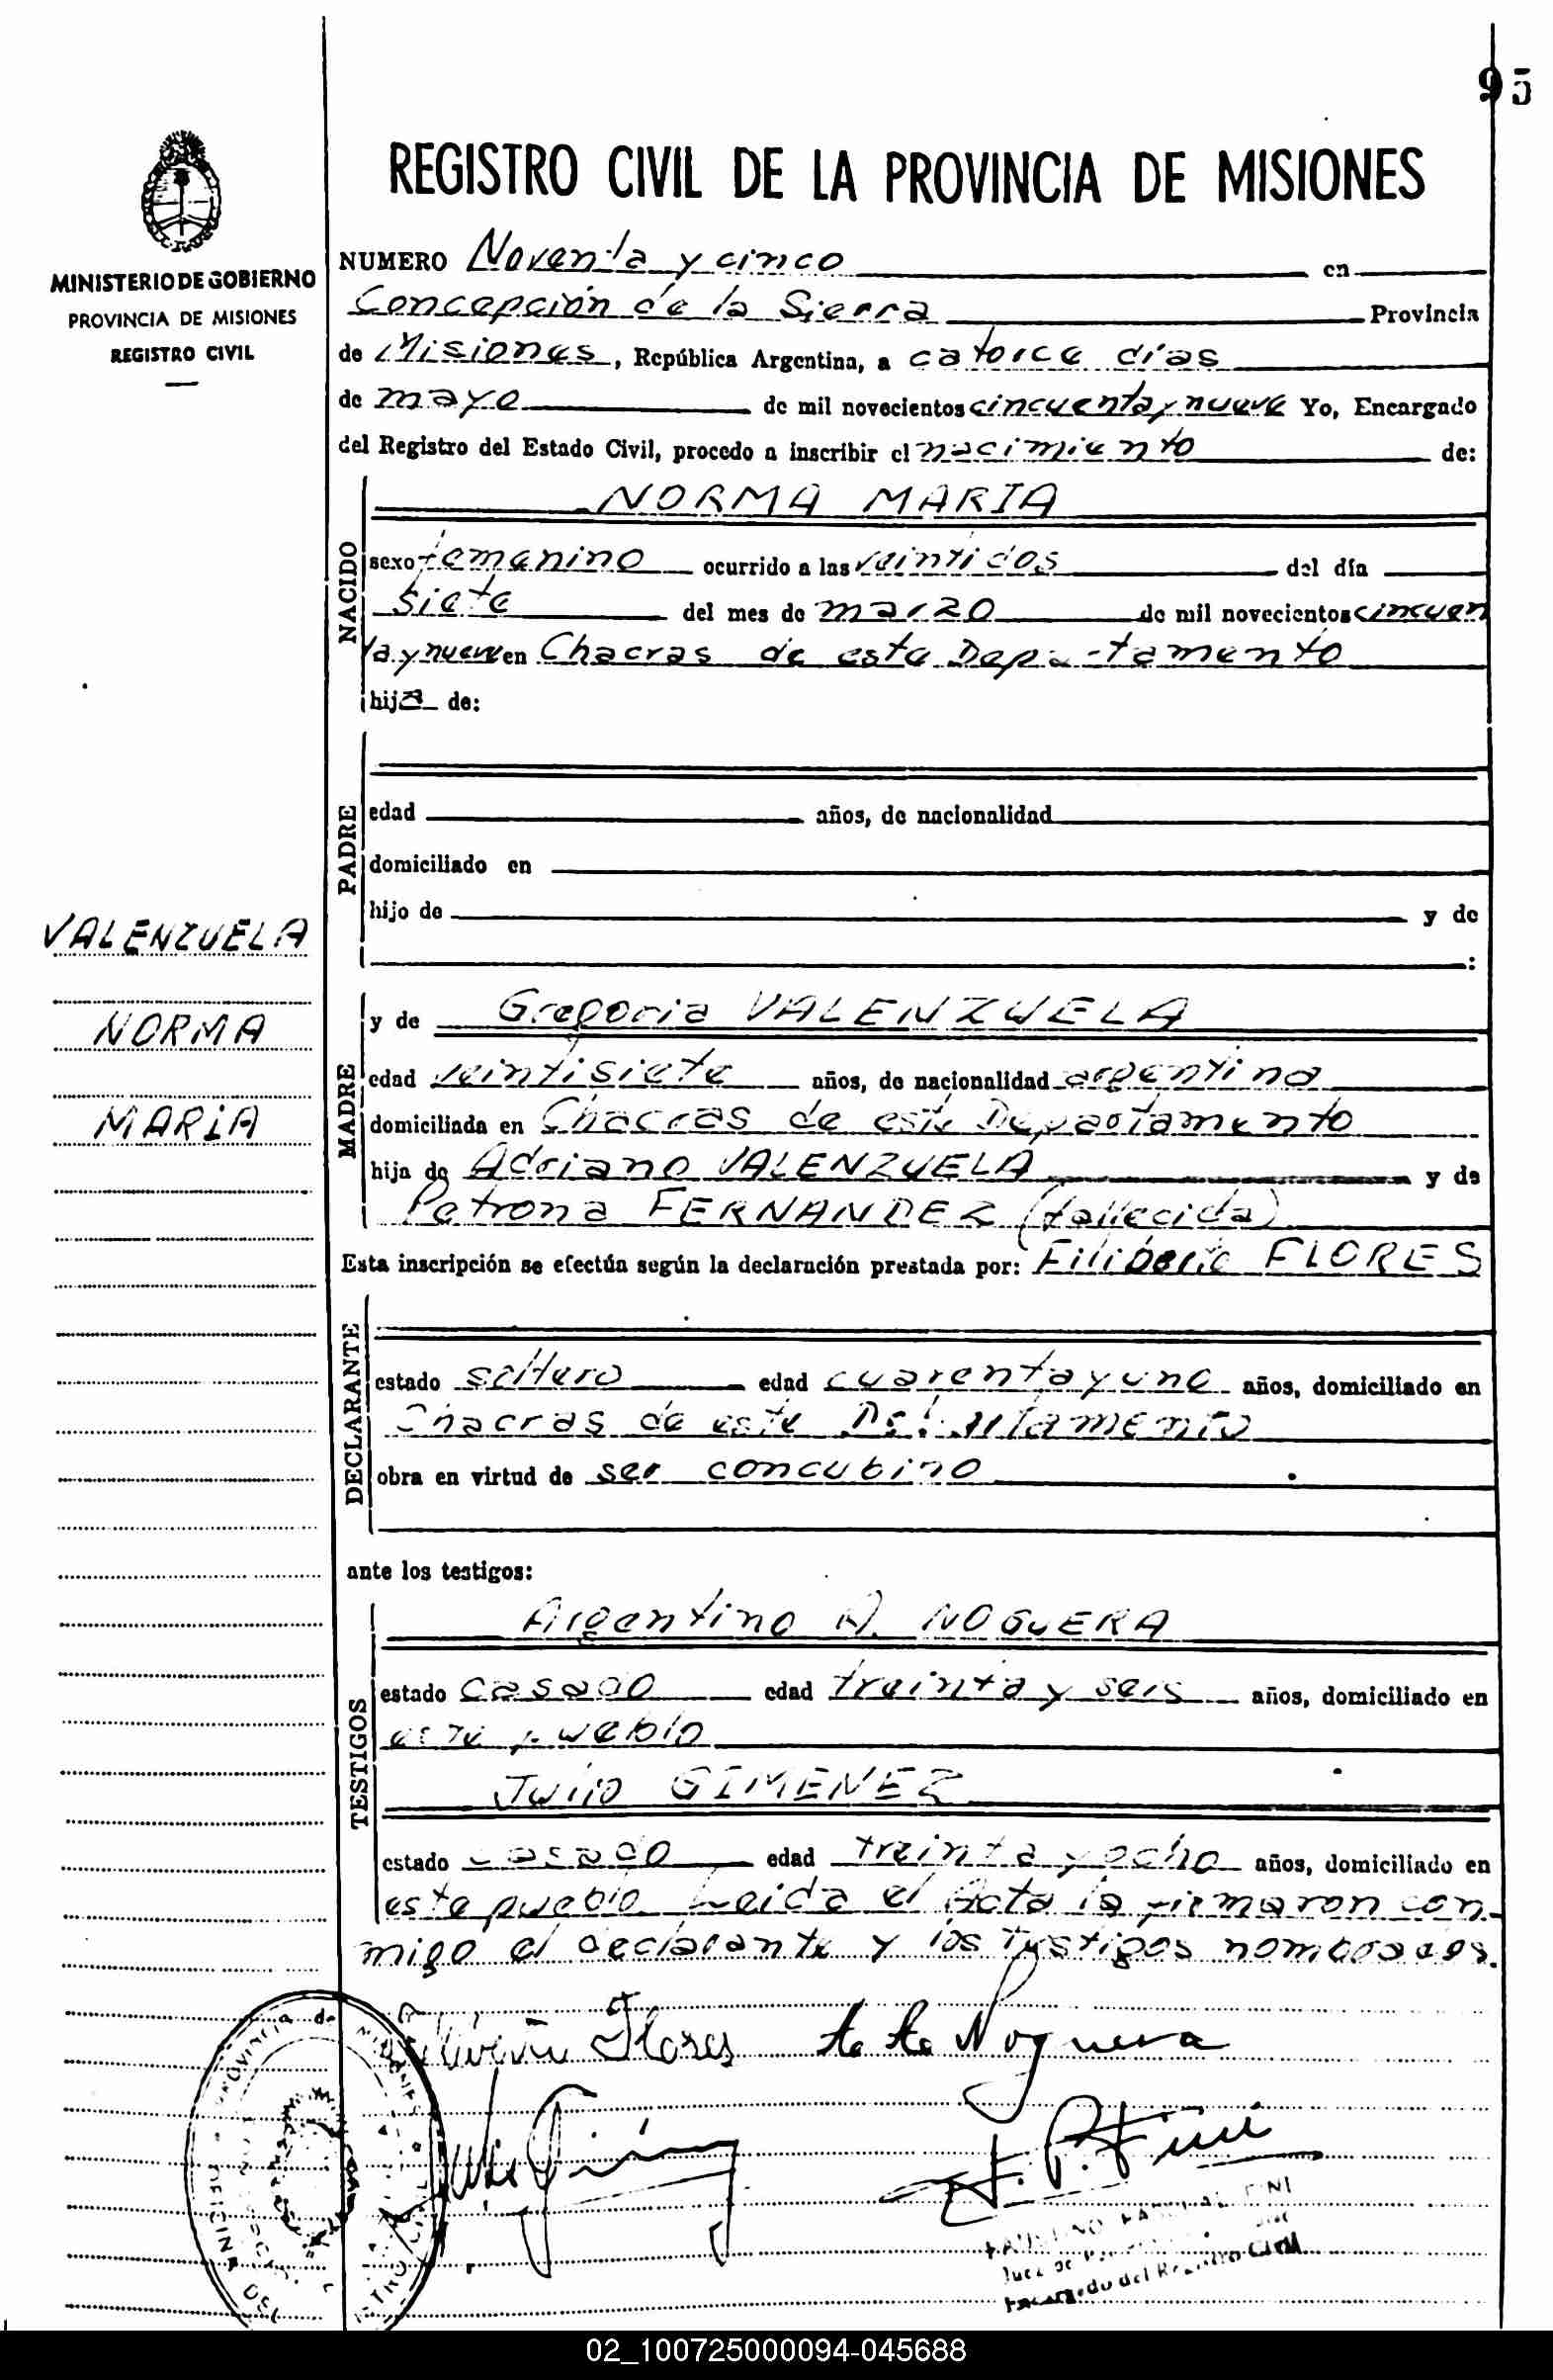 95
REGISTRO CIVIL DE LA PROVINCIA DE MISIONES
MINISTERIO DE GOBIERNO
PROVINCIA DE MISIONES
REGISTRO CIVIL
NUMERO Noventa y cinco en
Concepción de la Sierra Provincia
de Misiones, República Argentina, a catorce días
de mayo de mil novecientos cincuenta y nueve Yo, Encargado
del Registro del Estado Civil, procedo a inscribir el nacimiento de:
NACIDO
NORMA MARIA
sexo femenino ocurrido a las veintidos del día
siete del mes de marzo de mil novecientos cincuen
ta y nueve en Chacras de este Departamento
hija de:
PADRE
edad años, de nacionalidad
domiciliado en
hijo de y de
:
VALENZUELA
NORMA
MARIA
MADRE
y de Gregoria VALENZUELA
edad veintisiete años, de nacionalidad argentina
domiciliada en Chacras de este Departamento
hija de Adriano VALENZUELA y de
Petrona FERNANDEZ (fallecida)
Esta inscripción se efectúa según la declaración prestada por: Filiberto FLORES
DECLARANTE
estado soltero edad cuarenta y uno años, domiciliado en
Chacras de este Departamento
obra en virtud de ser concubino
ante los testigos:
TESTIGOS
Argentino A. NOGUERA
estado casado edad treinta y seis años, domiciliado en
este pueblo
Julio GIMENEZ
estado casado edad treinta y ocho años, domiciliado en
este pueblo Leida el Acta la firmaron con
migo el declarante y los testigos nombrados.
Flores A. A. Noguera
Provincia de Misiones
OFICINA DEL
Encargado del Registro Civil
02_100725000094-045688